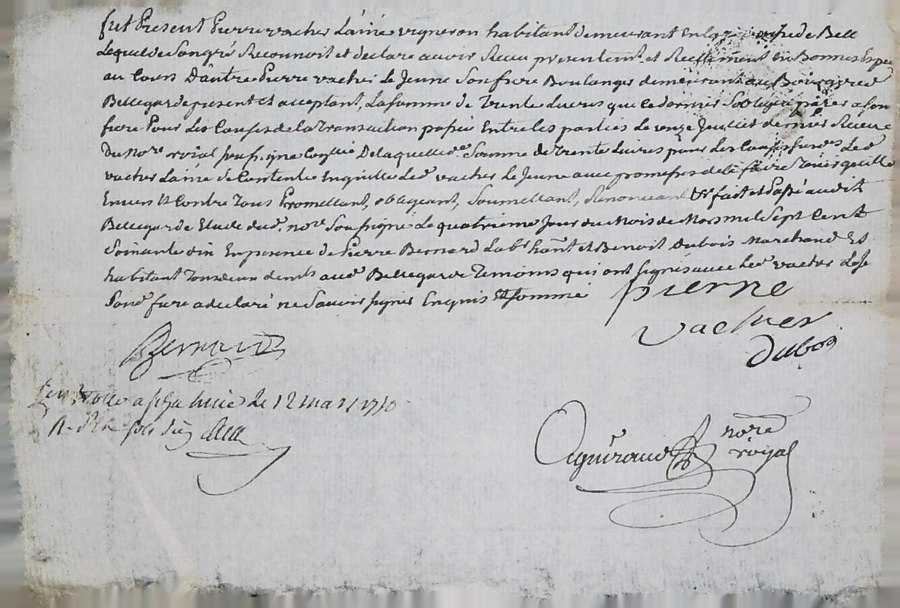 fut Present Pierre vacher Lainé vigneron habitant demeurant En la de Bell
Lequel de Son gré Reconnoit et declare avoir Receu presentemt. et Reellement En Bonnes Espe
au Cours Dautre Pierre vacher Le Jeune Son frere Boulanger demeurant au Bourg
Bellegarde present et acceptant, La somme de Trente Livres que ce dernier S'obligea payer a son
frere Pour Les Causes de la Transaction passée Entre Les parties Le onze Juillet dernier Receue
Du Nore. roial soussigné De laquelle de. Somme de Trente Livres pour Les Causes Led.
vacher Lainé Se Contente En quitte Led. vacher Le Jeune avec promesse de le faire Tenir quitte
Envers Et Contre Tous Promettant, obligeant, Soumettant, Renonceant fait et Passé audit
Bellegarde Etude dud. nore. Soussigné Le quatrieme Jour du Mois de Mars mil Sept Cent
Soixante dix En presence de Pierre Bernard Labr. hant. et Benoit Dubois Marchand Et
habitant Tous deux dud. Bellegarde Temoins qui ont Signés avec Led. vacher
Sond. frere a declaré ne Savoir signer Enquis Et Sommé
pierre
vacher
Bernard
dubois
Controllé a le 12 mars 1770
R.
nore.
royal